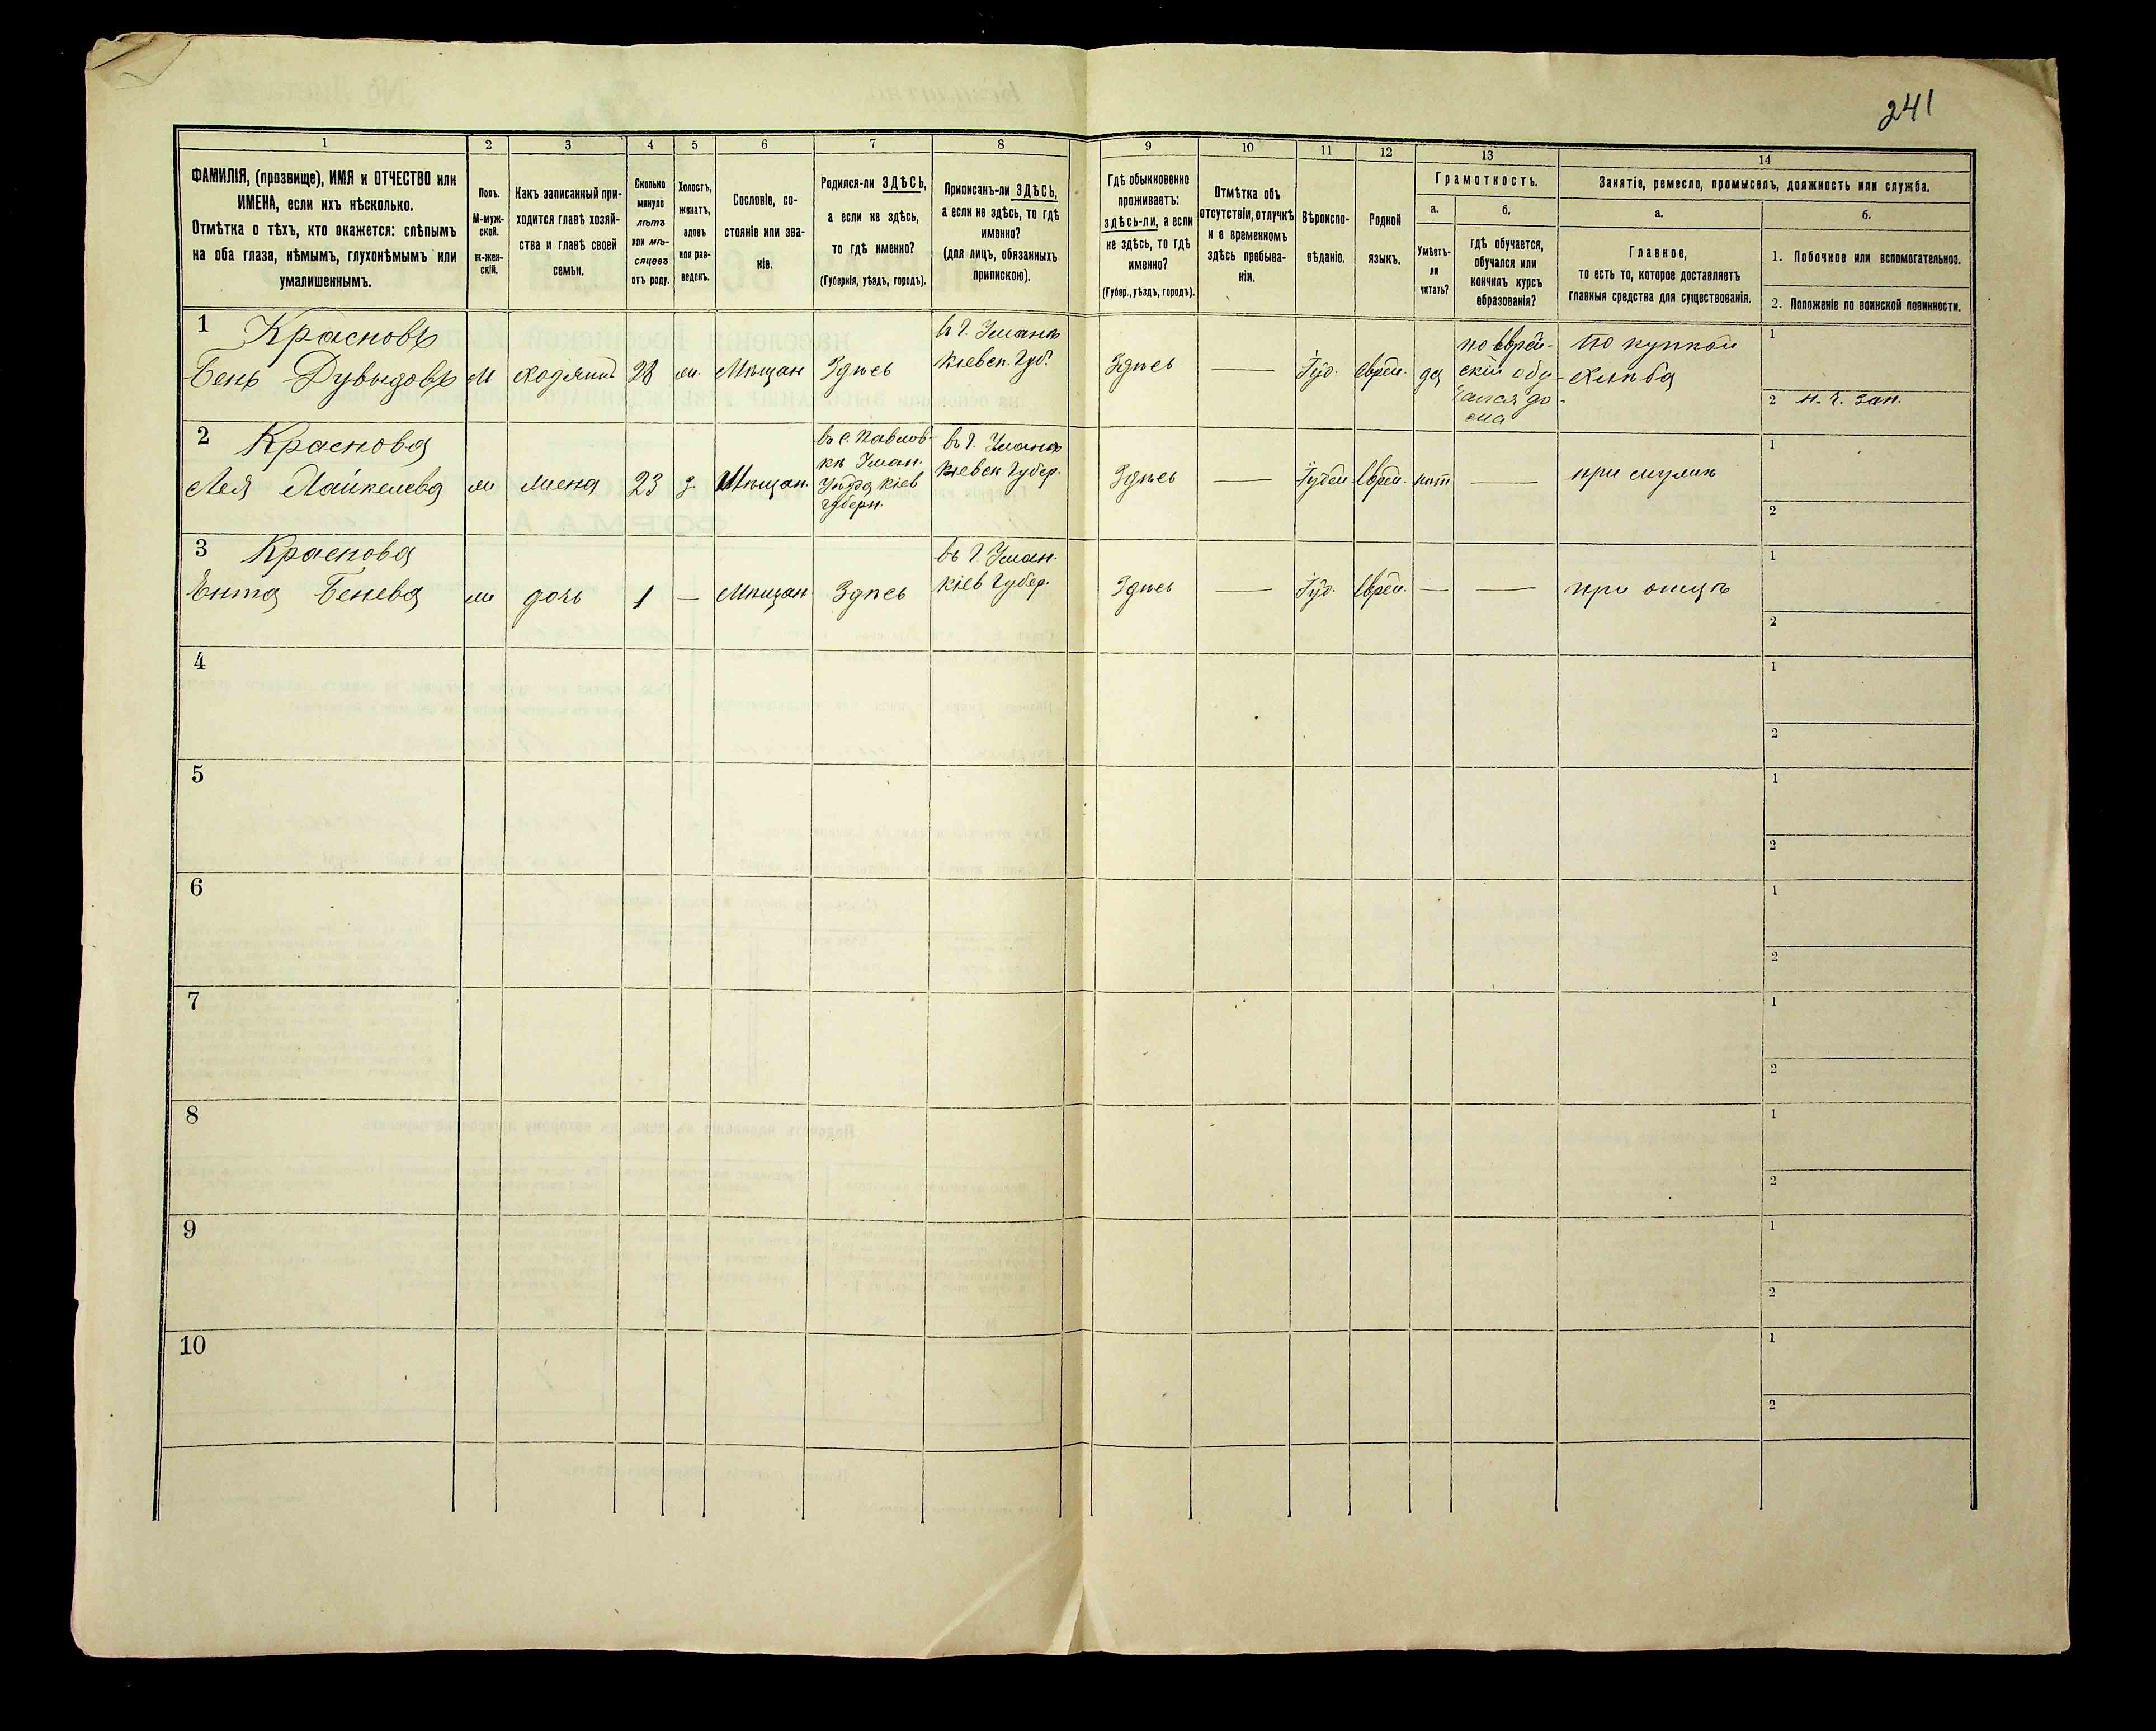 241
1 2 3 4 5 6 7 8 9 10 11 12 13 14
ФАМИЛІЯ, (прозвище), ИМЯ и ОТЧЕСТВО или
ИМЕНА, если ихъ нѣсколько.
Отмѣтка о тѣхъ, кто окажется: слѣпымъ
на оба глаза, нѣмымъ, глухонѣмымъ или
умалишеннымъ.
Полъ.
М-муж-
ской.
ж-жен-
скій.
Какъ записанный при-
ходится главѣ хозяй-
ства и главѣ своей
семьи.
Сколько
минуло
лѣтъ
или мѣ-
сяцевъ
отъ роду.
Холостъ,
женатъ,
вдовъ
или раз-
веденъ.
Сословіе, со-
стояніе или зва-
ніе.
Родился-ли ЗДѢСЬ,
а если не здѣсь,
то гдѣ именно?
(Губернія, уѣздъ, городъ).
Приписанъ-ли ЗДѢСЬ,
а если не здѣсь, то гдѣ
именно?
(для лицъ, обязанныхъ
припискою).
Гдѣ обыкновенно
проживаетъ:
здѣсь-ли, а если
не здѣсь, то гдѣ
именно?
(Губер., уѣздъ, городъ).
Отмѣтка объ
отсутствіи, отлучкѣ
и о временномъ
здѣсь пребыва-
ніи.
Вѣроиспо-
вѣданіе.
Родной
языкъ.
Грамотность.
а.
Умѣетъ-
ли
читать?
б.
гдѣ обучается,
обучался или
кончилъ курсъ
образованія?
Занятіе, ремесло, промыселъ, должность или служба.
а.
Главное,
то есть то, которое доставляетъ
главныя средства для существованія.
б.
1. Побочное или вспомогательное.
2. Положеніе по воинской повинности.
1 Красновъ
Бень Дувыдовъ
М
хозяинъ
28
ж.
Мѣщан
Здѣсь
въ г. Умань
Кіевск. Губ.
Здѣсь
—
Іуд.
еврей.
да
по еврей-
скій обу-
чался до-
ма
По купкой
хлѣба
1
2 н. ч. зап.
2 Краснова
Лея Майкелева
ж
жена
23
з.
Мѣщан.
въ с. Павлов-
кѣ Уман.
Уѣзда Кіев
Губерн.
въ г. Умань
Кіевск. Губер.
Здѣсь
—
Іудей
Еврей.
нѣт
—
при мужѣ
1
2
3 Краснова
Ента Бенева
ж
дочь
1
—
Мѣщан
Здѣсь
въ г. Уман.
Кіев Губер.
Здѣсь
—
Іуд.
Еврей.
—
—
при отцѣ
1
2
4
1
2
5
1
2
6
1
2
7
1
2
8
1
2
9
1
2
10
1
2